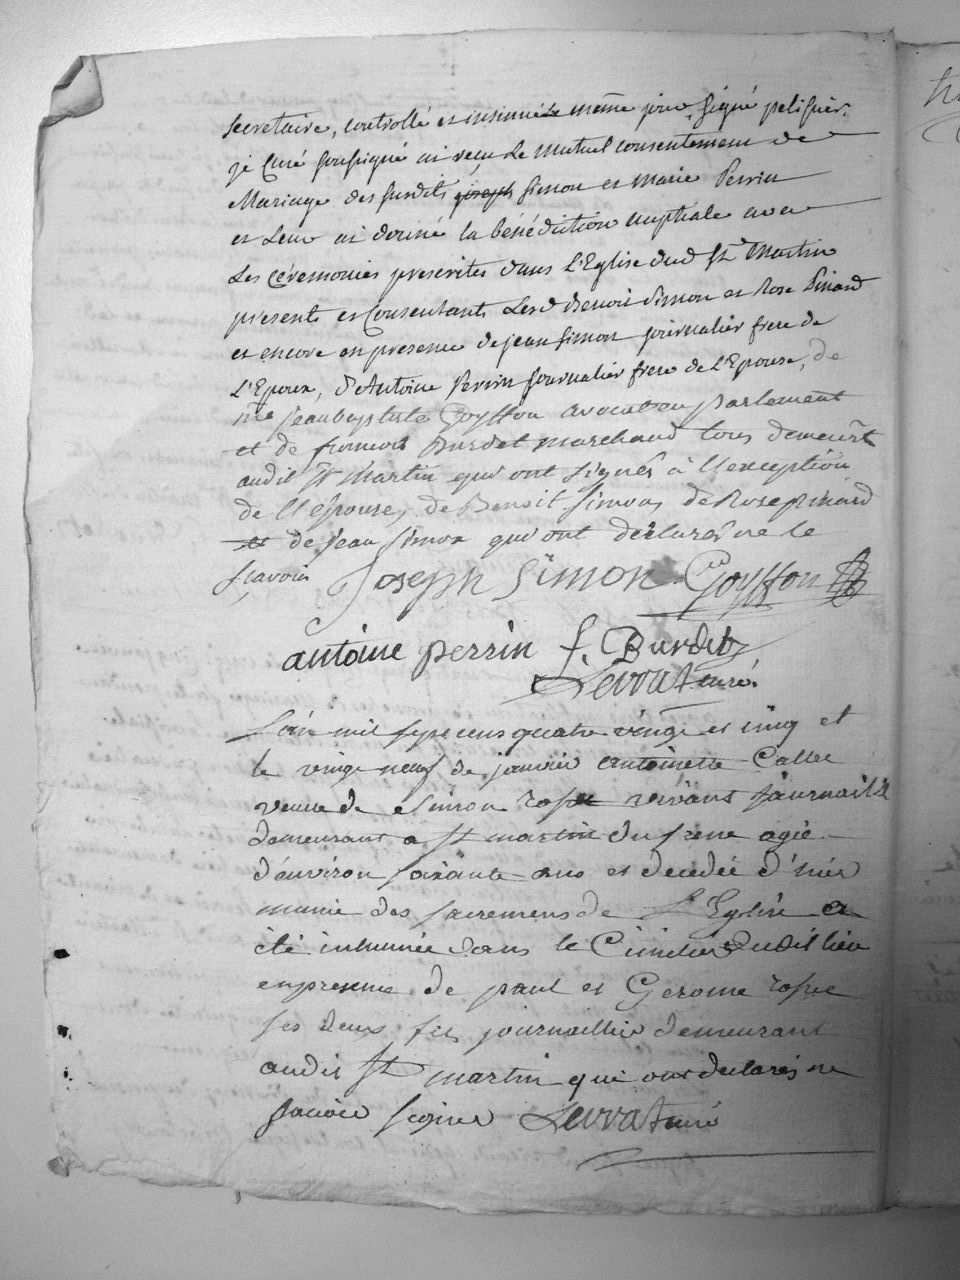 secretaire, controllé et insinué le même jour signé pelissier.
je Curé soussigné ai reçu le mutuel consentement de
Mariage des susdits joseph Simon et marie Perrin
et Leur ai donné la bénédiction nuptiale avec
Les cérémonies prescrites dans L'Eglise dud St Martin
presents et Consentants Lesd Benoit Simon et Rose Pinard
et encore en presence de jean Simon journalier frere de
L'Epoux, d'Antoine Perrin journalier frere de L'Epouse, de
me jean baptiste Goyffon avocat en parlement
et de francois Burdet marchand tous demeurt
audit St Martin qui ont signés à l'exception
de l'épouse, de Benoit Simon, de Rose pinard
et de jean Simon qui ont déclarés ne le
scavoir Joseph Simon Goyffon
antoine perrin f. Burdet
Levrat curé.
L'an mil sept cens quatre vingt et cinq et
le vingt neuf de janvier antoinette
veuve de Simon vivant journaillié
demeurant a St martin du frene agée
d'environ soixante ans et decedée d'hier
munie des sacremens de L'Eglise a
été inhumée dans le Cimetier dudit lieu
en presence de paul et Gerome
ses deux fis journaillié demeurant
audit St martin qui ont declarés ne
scavoir signer Levrat curé